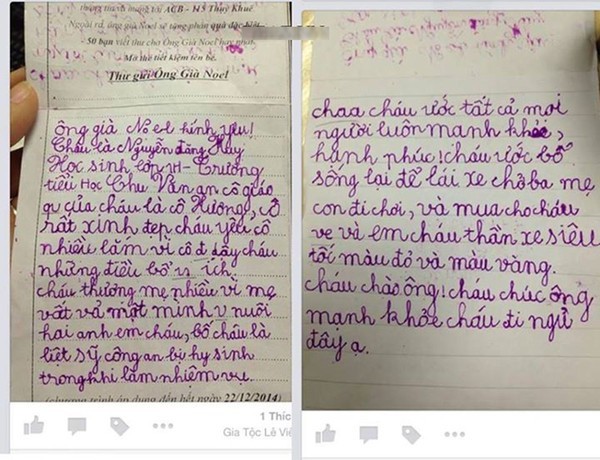 thông tin và mang tới ACB - 115 Thụy Khuê.
Ngoài ra, ông già Noel sẽ tặng phần quà đặc biệt
50 bạn viết thư cho Ông Già Noel hay nhất.
Mở thẻ tiết kiệm tên bé.
Thư gửi Ông Già Noel
ông già Noel kính yêu!
Cháu là Nguyễn đăng Huy
Học sinh lớp 1H - Trường
tiểu Học Chu Văn an cô giáo
qu của cháu là cô Hương, cô
rất xinh đẹp cháu yêu cô
nhiều lắm vì cô d dậy cháu
những điều bổ ích
cháu thương mẹ nhiều vì mẹ
vất vả một mình nuôi
hai anh em cháu, bố cháu là
liệt sỹ công an bị hy sinh
trong khi làm nhiệm vụ.
(chương trình áp dụng đến hết ngày 22/12/2014)
1 Thíc
Gia Tộc Lê Viê
chaa cháu ước tất cả mọi
người luôn mạnh khỏe,
hạnh phúc! cháu ước bố
sống lại để lái xe chở ba mẹ
con đi chơi, và mua cho cháu
ve và em cháu thần xe siêu
tốc màu đỏ và màu vàng.
cháu chào ông! cháu chúc ông
mạnh khỏe cháu đi ngủ
đây ạ.